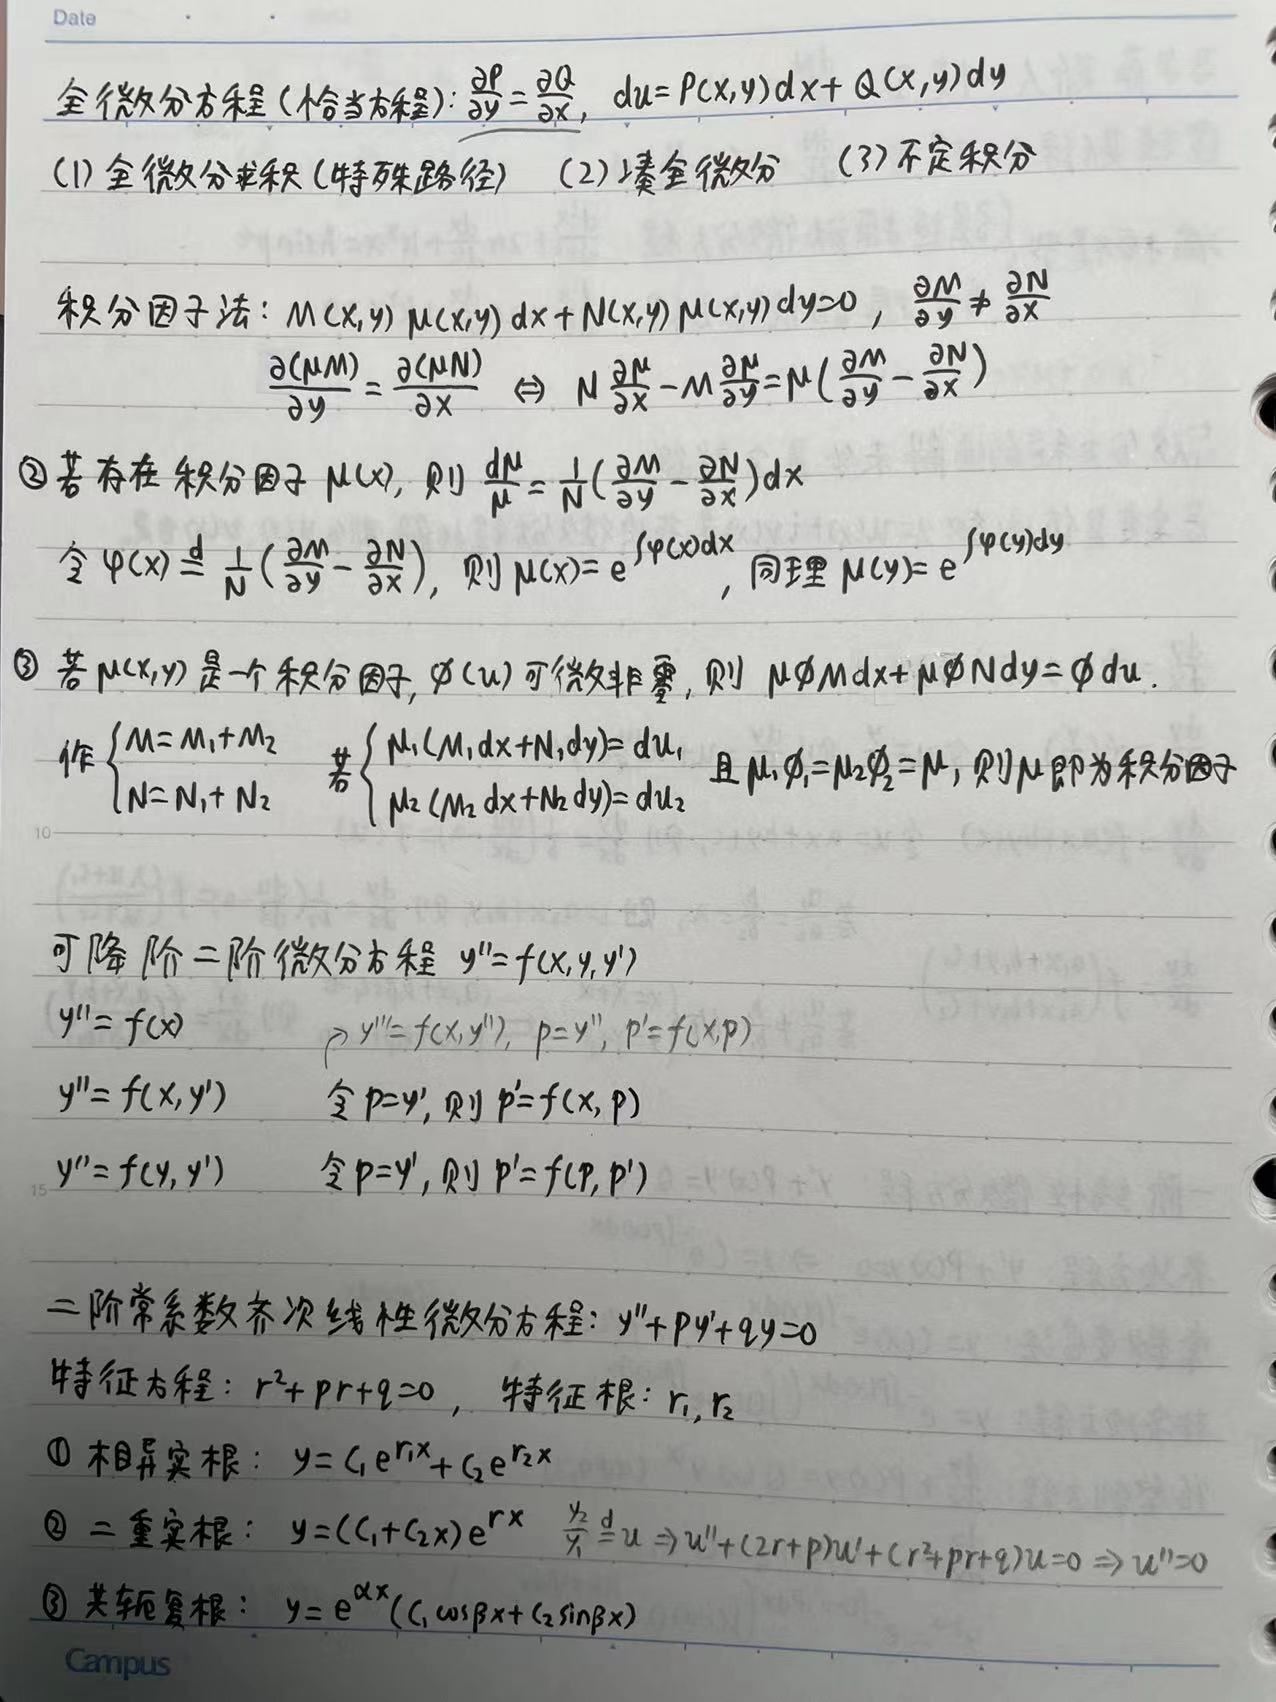 Date
全微分方程(恰当方程): ∂P/∂y = ∂Q/∂x, du = P(x,y)dx + Q(x,y)dy
(1) 全微分求积(特殊路径) (2) 凑全微分 (3) 不定积分
积分因子法: M(x,y) μ(x,y) dx + N(x,y) μ(x,y) dy = 0, ∂M/∂y ≠ ∂N/∂x
∂(μM)/∂y = ∂(μN)/∂x ⇔ N ∂μ/∂x - M ∂μ/∂y = μ(∂M/∂y - ∂N/∂x)
② 若存在积分因子 μ(x), 则 dμ/μ = 1/N (∂M/∂y - ∂N/∂x) dx
令 φ(x) ≝ 1/N (∂M/∂y - ∂N/∂x), 则 μ(x) = e^∫φ(x)dx, 同理 μ(y) = e^∫φ(y)dy
③ 若 μ(x,y) 是一个积分因子, ∅(u) 可微非零, 则 μ∅Mdx + μ∅Ndy = ∅du.
作 { M = M₁ + M₂ N = N₁ + N₂ 若 { μ₁(M₁dx + N₁dy) = du₁ μ₂(M₂dx + N₂dy) = du₂ 且 μ₁∅₁ = μ₂∅₂ = μ, 则 μ 即为积分因子
10
可降阶二阶微分方程 y'' = f(x,y,y')
y'' = f(x) y''' = f(x,y''), p = y'', p' = f(x,p)
y'' = f(x,y') 令 p = y', 则 p' = f(x,p)
y'' = f(y,y') 令 p = y', 则 p' = f(p,p')
15
二阶常系数齐次线性微分方程: y'' + py' + qy = 0
特征方程: r² + pr + q = 0, 特征根: r₁, r₂
① 相异实根: y = C₁e^r₁x + C₂e^r₂x
② 二重实根: y = (C₁ + C₂x)e^rx y₂/y₁ ≝ u ⇒ u'' + (2r+p)u' + (r²+pr+q)u = 0 ⇒ u'' = 0
③ 共轭复根: y = e^αx (C₁cosβx + C₂sinβx)
Campus